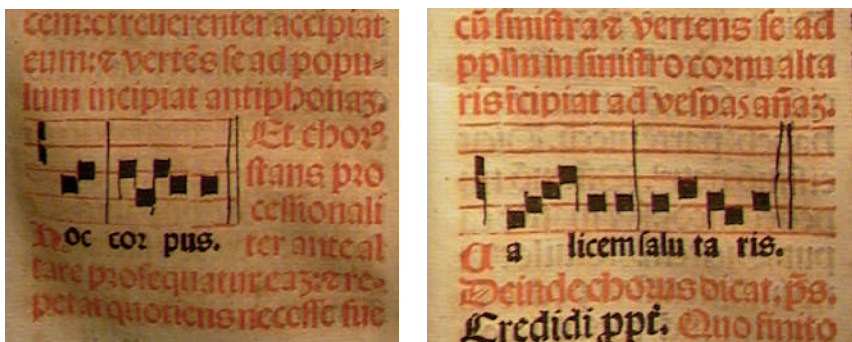 cem: et reuerenter accipiat
eum: ⁊ vertēs se ad popu-
lum incipiat antiphonaꝫ.
Et chorꝰ
stans pro
cessionali
Hoc corpus. ter ante al
tare prosequatur eaꝫ: ⁊ re-
petat quotiens necesse fue
cū sinistra ⁊ vertens se ad
pplm in sinistro cornu alta
ris īcipiat ad vespas añaꝫ.
Ca licem salu ta ris.
Deinde chorus dicat. p̄s.
Credidi ꝓpt̄. Quo finito